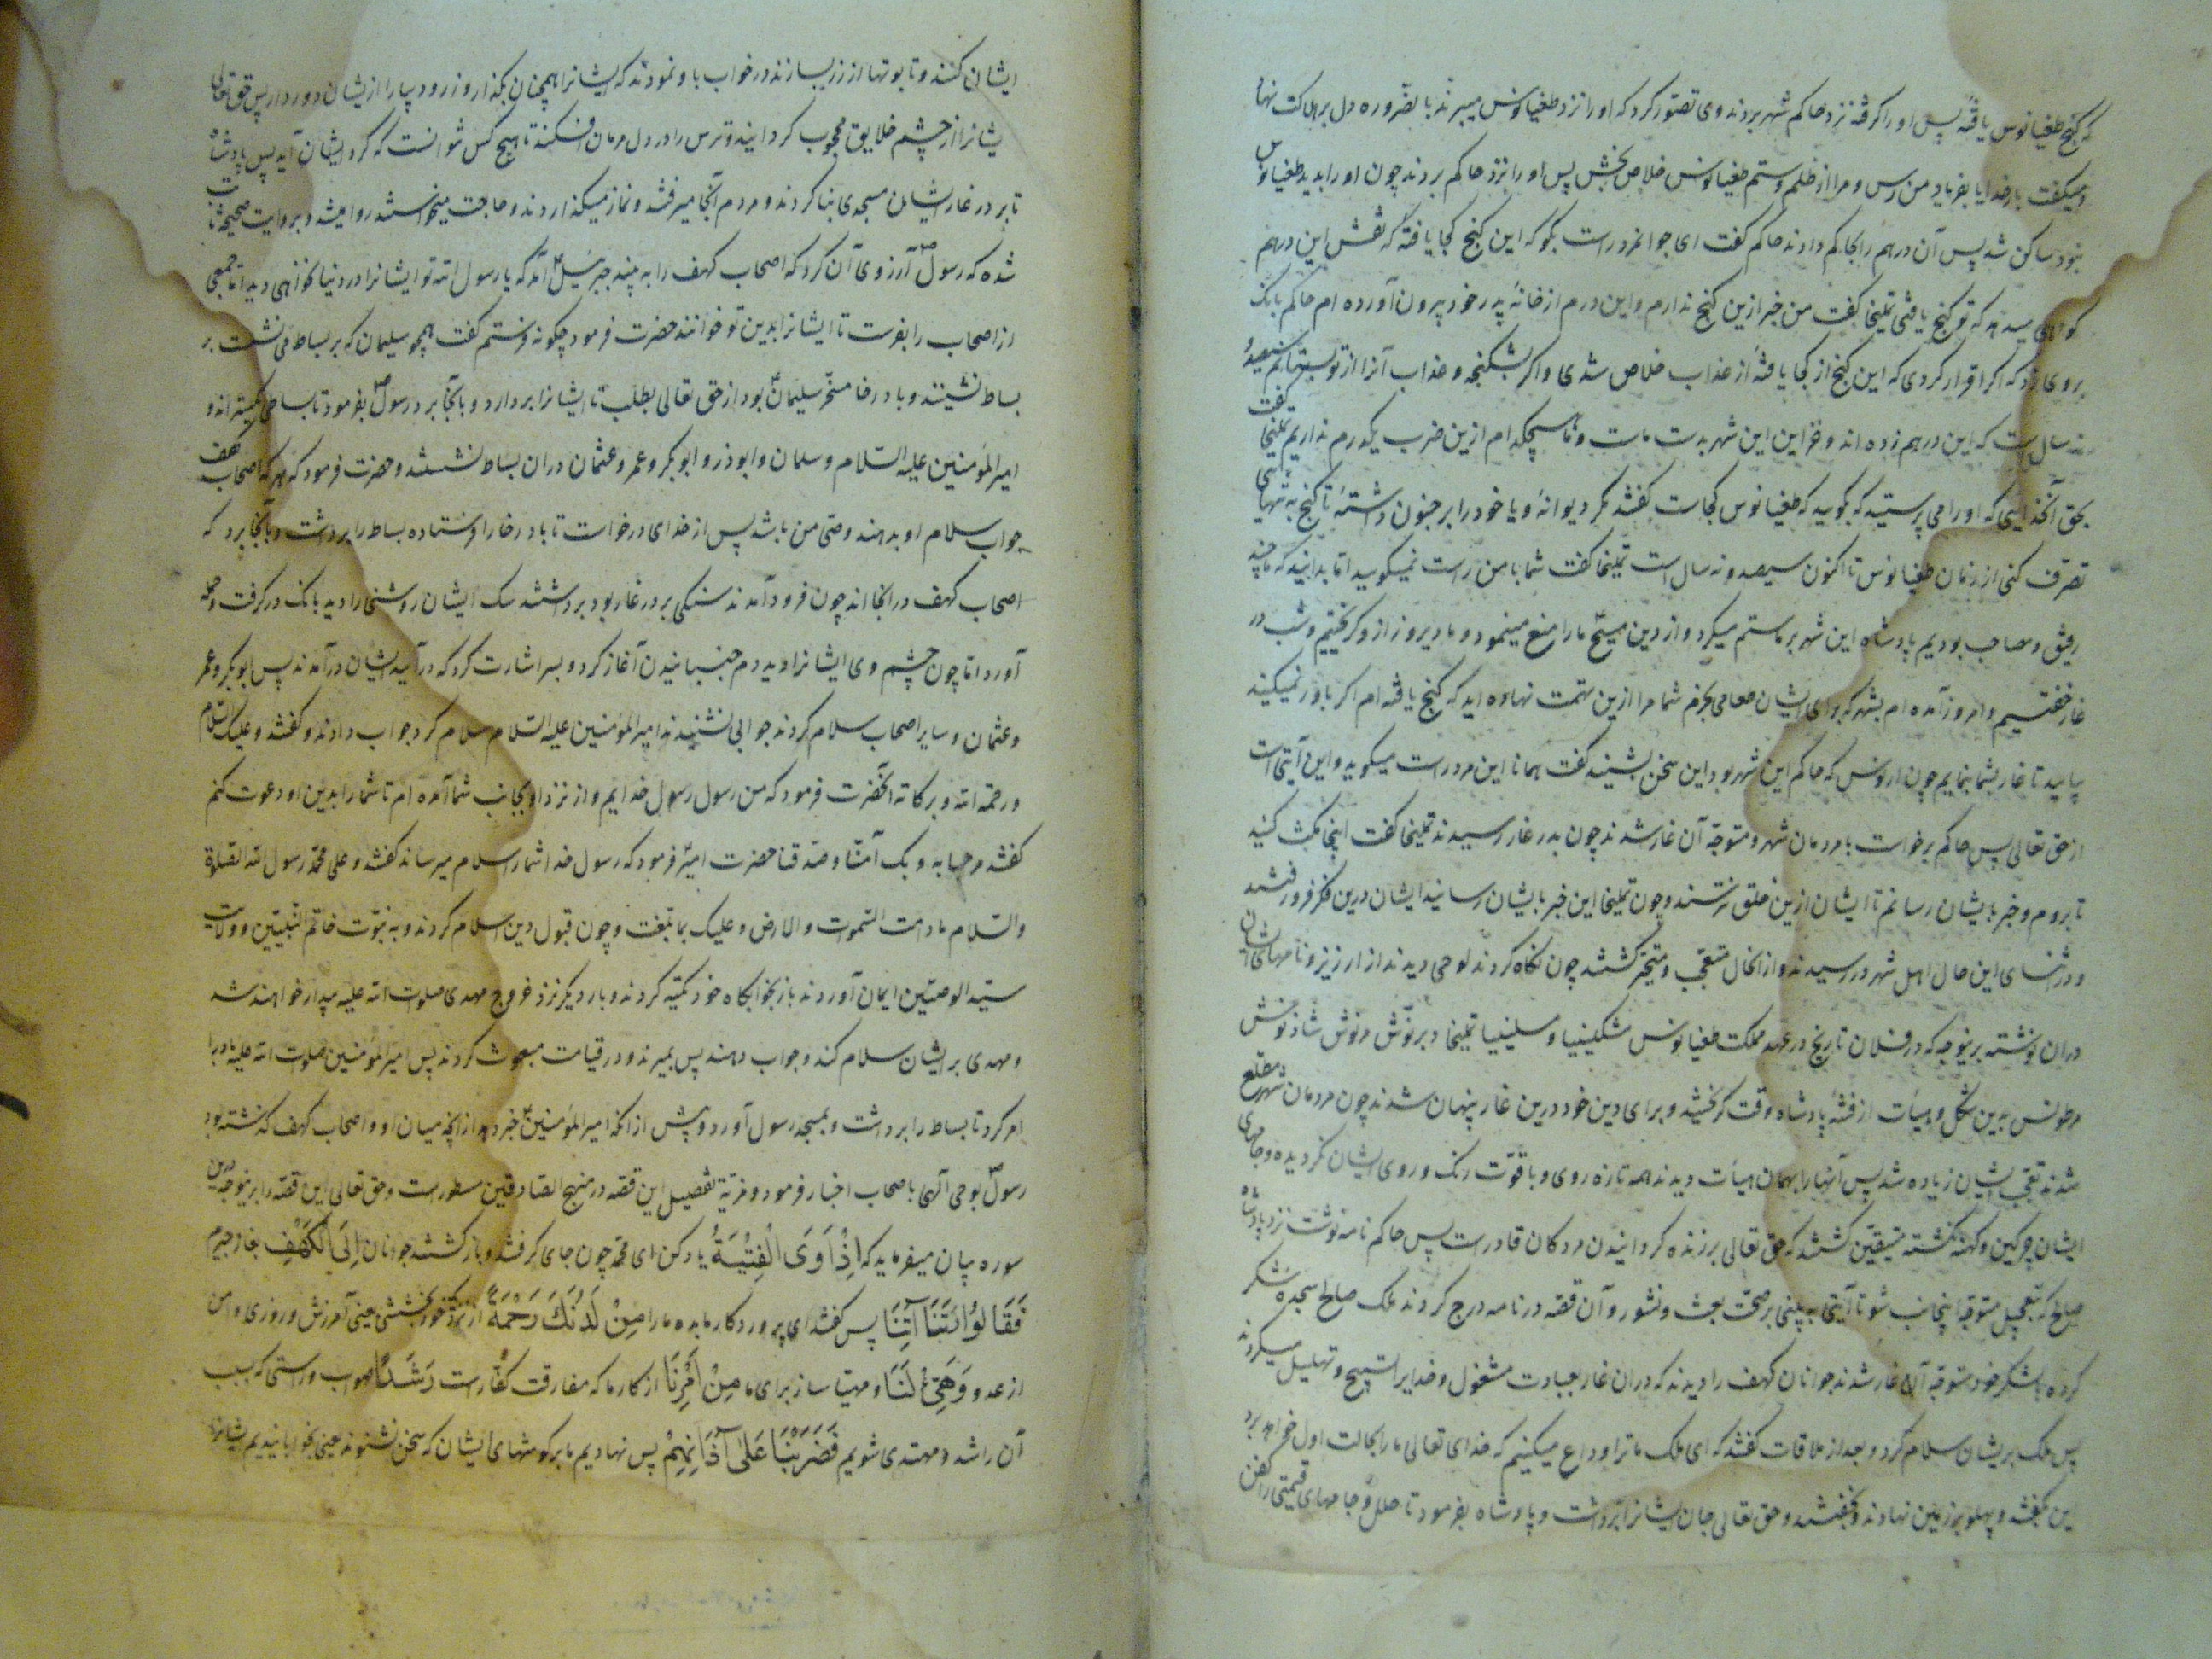 که گنج طغیانوس یافتهٔ پس او را گرفته نزد حاکم شهر بردند وی تصور کرد که او را نزد طغیانوس میبرند بالضروره دل بر هلاکت نهاد
و میگفت بار خدایا بفریاد من رس و مرا از ظلم و ستم طغیانوس خلاص بخش پس او را نزد حاکم بردند چون او را بدید طغیانوس
نبود ساکن شد پس آن درهم را بحاکم دادند حاکم گفت ای جوانمرد راست بگو که این گنج کجا یافتهٔ که نقش این درهم
گواهی میدهد که تو گنج یافتی تملیخا گفت من خبر ازین گنج ندارم و این درم از خانهٔ پدر خود بیرون آورده ام حاکم بانک
بر وی زد که اگر اقرار کردی که این گنج از کجا یافتهٔ از عذاب خلاص شدی و اگر بشکنجه و عذاب آنرا از تو بستانم سیصد و
نه سال است که این درهم زده اند و خزاین این شهر بدست ماست و ما هیچکدام ازین ضرب یکدرم نداریم تملیخا گفت
بحق آنخدایی که او را می پرستید که بگویید که طغیانوس کجاست گفتند مگر دیوانهٔ و یا خود را بر جنون داشتهٔ تا گنج به تنهایی
تصرف کنی از زمان طغیانوس تا اکنون سیصد و نه سال است تملیخا گفت شما با من راست نمیگویید اما بدانید که ما چند
رفیق و مصاحب بودیم پادشاه این شهر بر ما ستم میکرد و از دین مسیح ما را منع مینمود و ما دیروز از او گریختیم و شب در
غار خفتیم و امروز آمده ام بشهر که برای ایشان طعامی بخرم شما مرا ازین تهمت نهاده اید که گنج یافته ام اگر باور نمیکنید
بیایید تا غار بشما بنمایم چون اریوس که حاکم این شهر بود این سخن بشنید گفت همانا این مرد راست میگوید و این آیتی است
از حق تعالی پس حاکم برخواست با مردمان شهر و متوجه آن غار شدند چون بدر غار رسیدند تملیخا گفت اینجا مکث کنید
تا بروم و خبر بایشان رسانم تا ایشان ازین خلق نترسند و چون تملیخا این خبر بایشان رسانید ایشان درین فکر فرو رفتند
و در اثنای این حال اهل شهر در رسیدند و از انحال متعجب و متحیر گشتند چون نگاه کردند لوحی دیدند از ارزیز و نامهای ایشان
در ان نوشته برینوجه که در فلان تاریخ در عهد مملکت طغیانوس مکسلینیا و مسلینیا تملیخا دبرنوش مرنوش شاذنوش
مرطونس بدین شکل و هیأت از فتنهٔ پادشاه وقت گریختند و برای دین خود درین غار پنهان شدند چون مردمان شهر مطلع
شدند تعجب ایشان زیاده شد پس آنها را بهمان هیأت دیدند همه تازه روی و با قوت رنک و روی ایشان نگردیده و جامهای
ایشان چرکین و کهنه نگشته متیقن گشتند که حق تعالی بر زنده گردانیدن مردگان قادر است پس حاکم نامه نوشت نزد پادشاه
صالح که بتعجیل متوجه اینجانب شو تا آیتی به بینی بر صحت بعث و نشور و آن قصه در نامه درج کردند ملک صالح سجدهٔ شکر
کرده با لشکر خود متوجه آن غار شدند جوانان کهف را دیدند که در ان غار بعبادت مشغول و خدایرا تسبیح و تهلیل میکردند
پس ملک بر ایشان سلام کرد و بعد از ملاقات گفتند که ای ملک ما ترا وداع میکنیم که خدای تعالی ما را بحالت اول خواهد برد
این بگفتند و پهلو بر زمین نهادند و بخفتند و حق تعالی جان ایشانرا برداشت و پادشاه بفرمود تا حلل و جامهای قیمتی را کفن
ایشان کنند و تابوتها از زر بسازند در خواب با و نمودند که ایشانرا همچنان بگذار و زر و دیبا را از یشان دور دار پس حق تعالی
یشانرا از چشم خلایق محجوب گردانید و ترس را در دل مردمان افکند تا هیچ کس نتوانست که گرد ایشان آید پس پادشاه
تا بر در غار ایشان مسجدی بنا کردند و مردم آنجا میرفتند و نماز میگذاردند و حاجت میخواستند روا میشد و بروایت صحیحه ثابت
شده که رسولؐ آرزوی آن کرد که اصحاب کهف را به بیند جبرئیلؑ آمد که یا رسول الله تو ایشانرا در دنیا نخواهی دید اما جمعی
را از اصحاب را بفرست تا ایشانرا بدین تو خوانند حضرت فرمود چگونه فرستم گفت همچو سلیمان که بر بساط می نشست بر
بساط نشینند و باد رخا مسخر سلیمانؑ بود از حق تعالی بطلب تا ایشانرا بردارد و بانجا برد رسولؐ بفرمود تا بساطی گسترانند و
امیرالمؤمنین علیه السلام و سلمان و ابوذر و ابوبکر و عمر و عثمان در ان بساط نشستند و حضرت فرمود که هر که اصحاب کهف
جواب سلام او بدهند وصی من باشد پس از خدای درخواست تا باد رخا را فرستاده بساط را برداشت و بانجا برد که
اصحاب کهف در انجا اند چون فرود آمدند سنگی بر در غار بود برداشتند سگ ایشان روشنی را دید بانک در گرفت و حمله
آورد اما چون چشم وی ایشانرا دید دم جنبانیدن آغاز کرد و بسر اشارت کرد که در آیید ایشان در آمدند پس ابوبکر و عمر
و عثمان و سایر اصحاب سلام کردند جوابی نشنیدند امیرالمؤمنین علیه السلام سلام کرد جواب دادند و گفتند و علیک السلام
و رحمة الله و برکاته آنحضرت فرمود که من رسول رسول خدایم و از نزد او بجانب شما آمده ام تا شما را بدین او دعوت کنم
گفتند مرحبا به و بک آمنا و صدقنا حضرت امیرؑ فرمود که رسول خدا شما را سلام میرساند گفتند و علی محمد رسول الله الصلوة
والسلام مادامت السموات والارض و علیک بما بلغت و چون قبول دین اسلام کردند و به نبوت خاتم النبیین و ولایت
سید الوصیین ایمان آوردند باز بخوابگاه خود تکیه کردند و بار دیگر نزد خروج مهدی صلوات الله علیه بیدار خواهند شد
و مهدی بر ایشان سلام کند و جواب دهند پس بمیرند و در قیامت مبعوث گردند پس امیرالمؤمنین صلوات الله علیه باد را
امر کرد تا بساط را برداشت و بمسجد رسول آورد و پیش از انکه امیرالمؤمنینؑ خبر دهد از انچه میان او و اصحاب کهف گذشته بود
رسولؐ بوحی الهی باصحاب اخبار فرمود و مزید تفصیل این قصه در منهج الصادقین مسطور است و حق تعالی این قصه را برینوجه درین
سوره بیان میفرماید که اِذْ اَوَى الْفِتْيَةُ یاد کن ای محمد چون جای گرفتند و باز گشتند جوانان اِلَى الْكَهْفِ بغار جیرم
فَقَالُوا رَبَّنَا آتِنَا پس گفتند ای پروردگار ما بده ما را مِنْ لَدُنْكَ رَحْمَةً از نزدیک خود بخششی یعنی آمرزش و روزی و امن
از عدو وَهَيِّئْ لَنَا و مهیا ساز برای ما مِنْ اَمْرِنَا از کار ما که مفارقت کفار است رَشَدًا صواب و راستی که بسبب
آن راشد و مهتدی شویم فَضَرَبْنَا عَلٰى آذَانِهِمْ پس نهادیم ما بر گوشهای ایشان که سخن نشنوند یعنی بخوابانیدیم ایشانرا